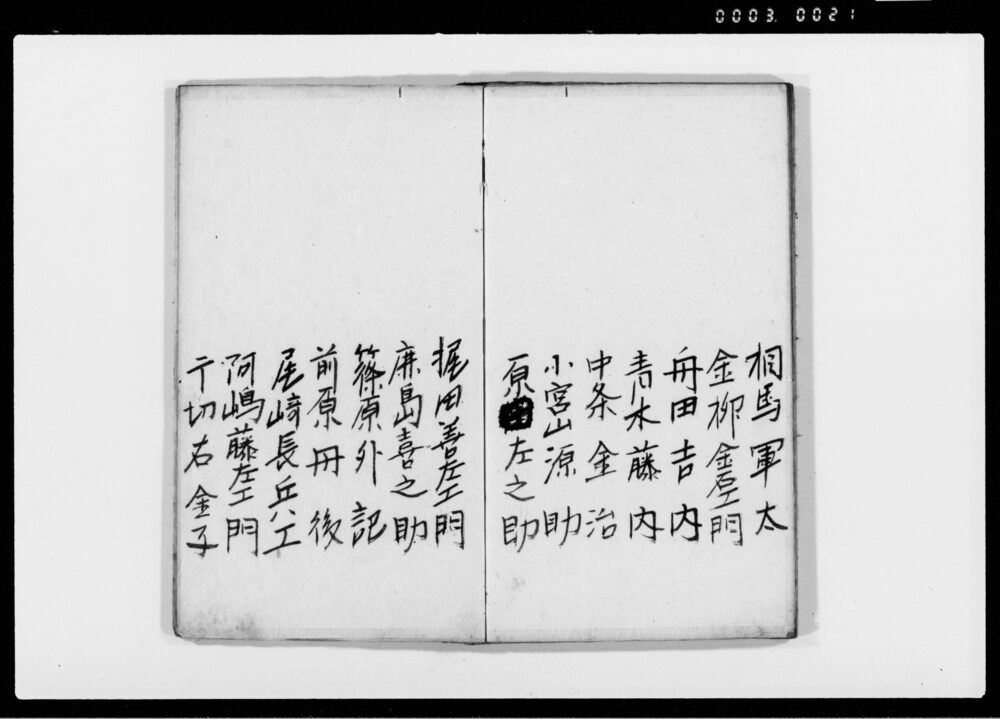 0003.0021
相馬軍太
金柳金左エ門
舟田吉内
青木藤内
中条金治
小宮山源助
原左之助
握田善左エ門
鹿島喜之助
篠原外記
前原丹後
尾﨑長兵エ
阿嶋藤左エ門
切右金子